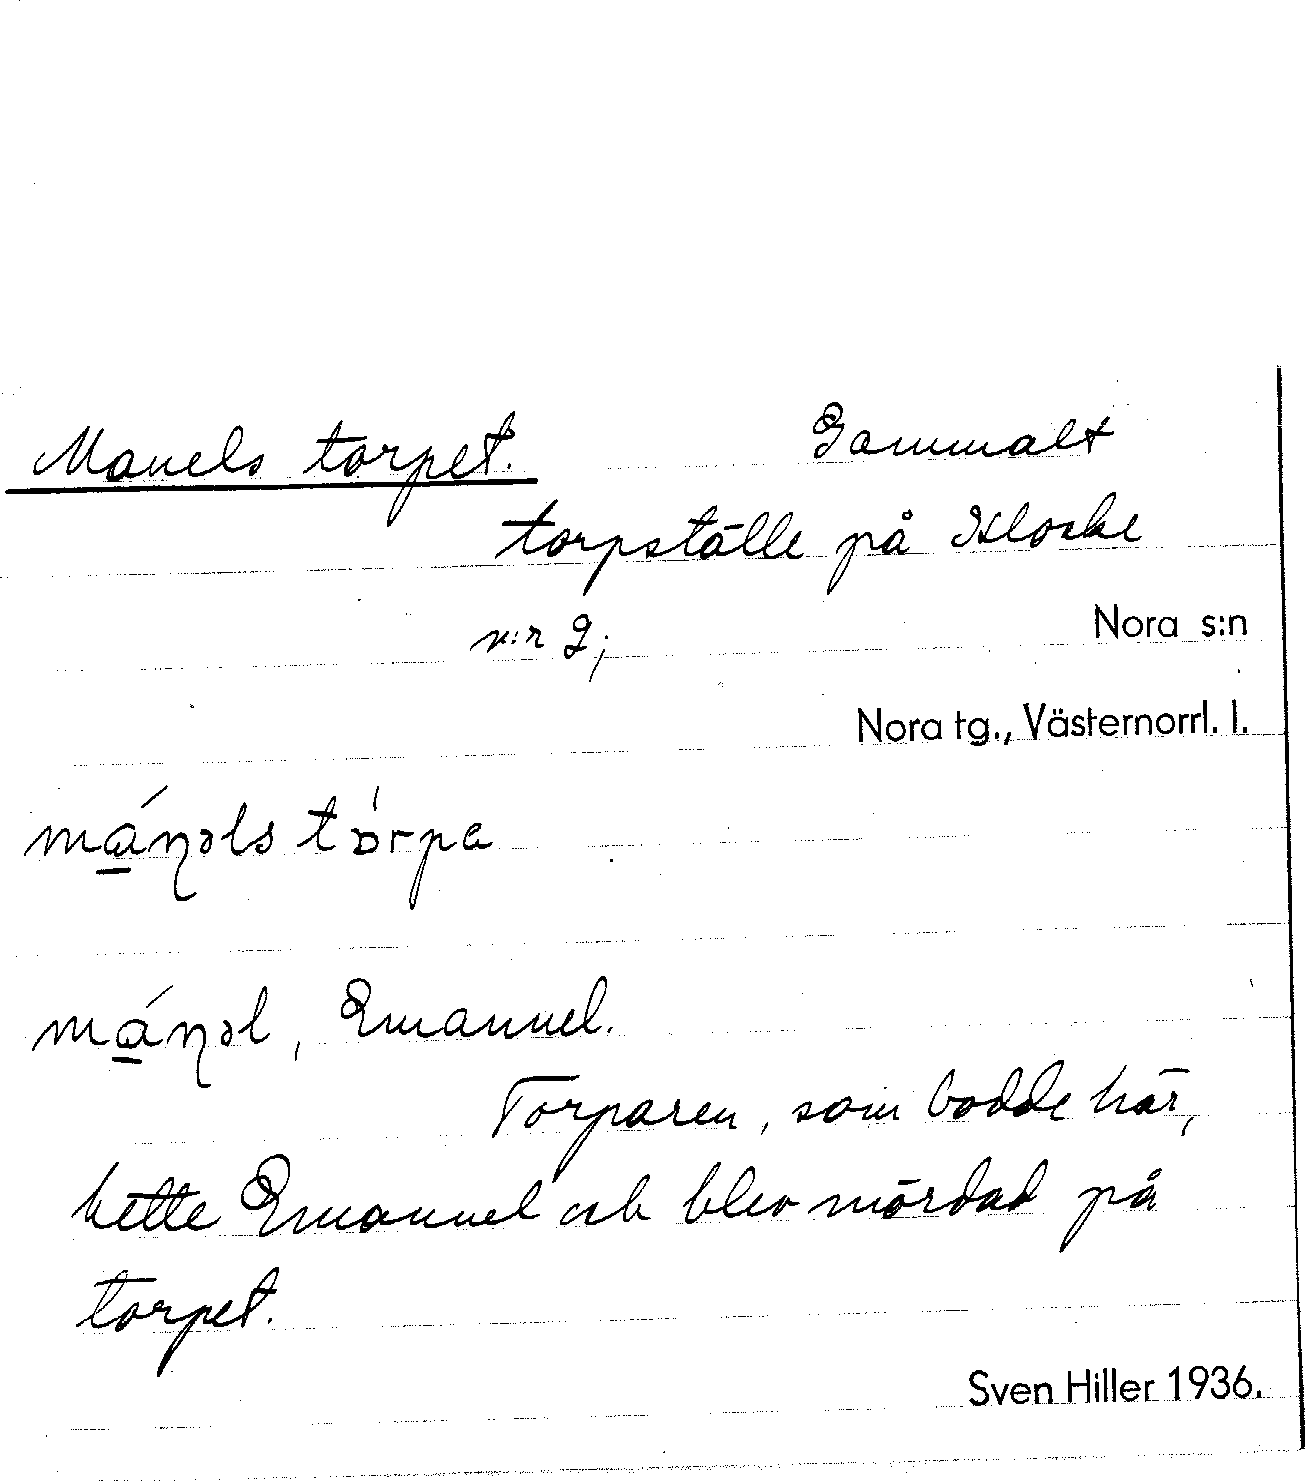 Manels torpet. Gammalt
torpställe på Kloske
n:r 2;
Nora s:n
Nora tg., Västernorrl. l.
mánəls tórpa
mánəl, Emanuel.
Torparen, som bodde här,
hette Emanuel och blev mördad på
torpet.
Sven Hiller 1936.